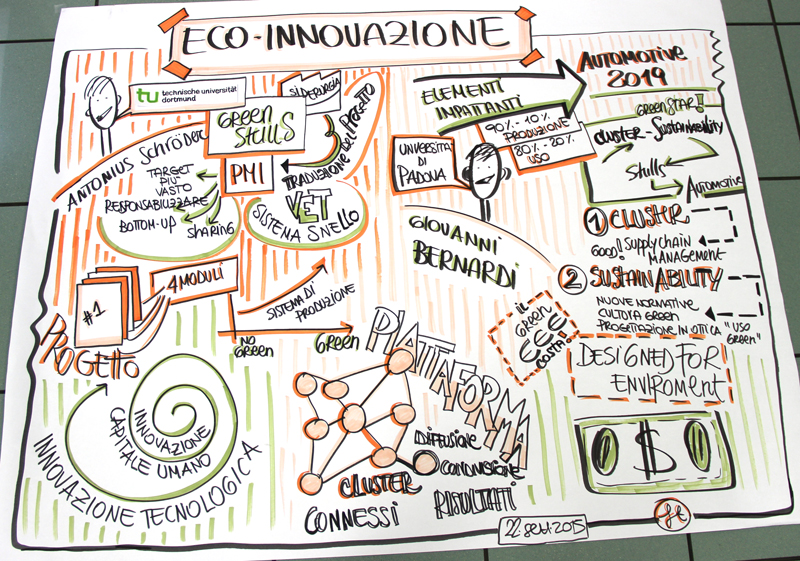 ECO-INNOVAZIONE
tu technische universität
dortmund
ANTONIUS SCHRÖDER
GREEN
SKILLS
SIDERURGIA
TRADUZIONE DEL PROGETTO
PMI
TARGET
PIU'
VASTO
RESPONSABILIZZARE
BOTTOM-UP
SHARING
VET
SISTEMA SNELLO
#1
4 MODULI
PROGETTO
SISTEMA DI
PRODUZIONE
NO
GREEN
GREEN
INNOVAZIONE
CAPITALE UMANO
INNOVAZIONE TECNOLOGICA
PIATTAFORMA
CLUSTER
CONNESSI
DIFFUSIONE
CONDIVISIONE
RISULTATI
ELEMENTI
IMPATTANTI
AUTOMOTIVE
2019
90% - 10%
PRODUZIONE
80% - 20%
USO
UNIVERSITÀ
DI
PADOVA
GIOVANNI
BERNARDI
GREENSTAR!
CLUSTER - SUSTAINABILITY
SKILLS
AUTOMOTIVE
1 CLUSTER
GOOD! SUPPLY CHAIN
MANAGEMENT
2 SUSTAINABILITY
NUOVE NORMATIVE
CULTURA GREEN
PROGETTAZIONE IN OTTICA "USO
GREEN"
IL
GREEN
COSTA!
DESIGNED FOR
ENVIROMENT
$
22 SETT. 2015